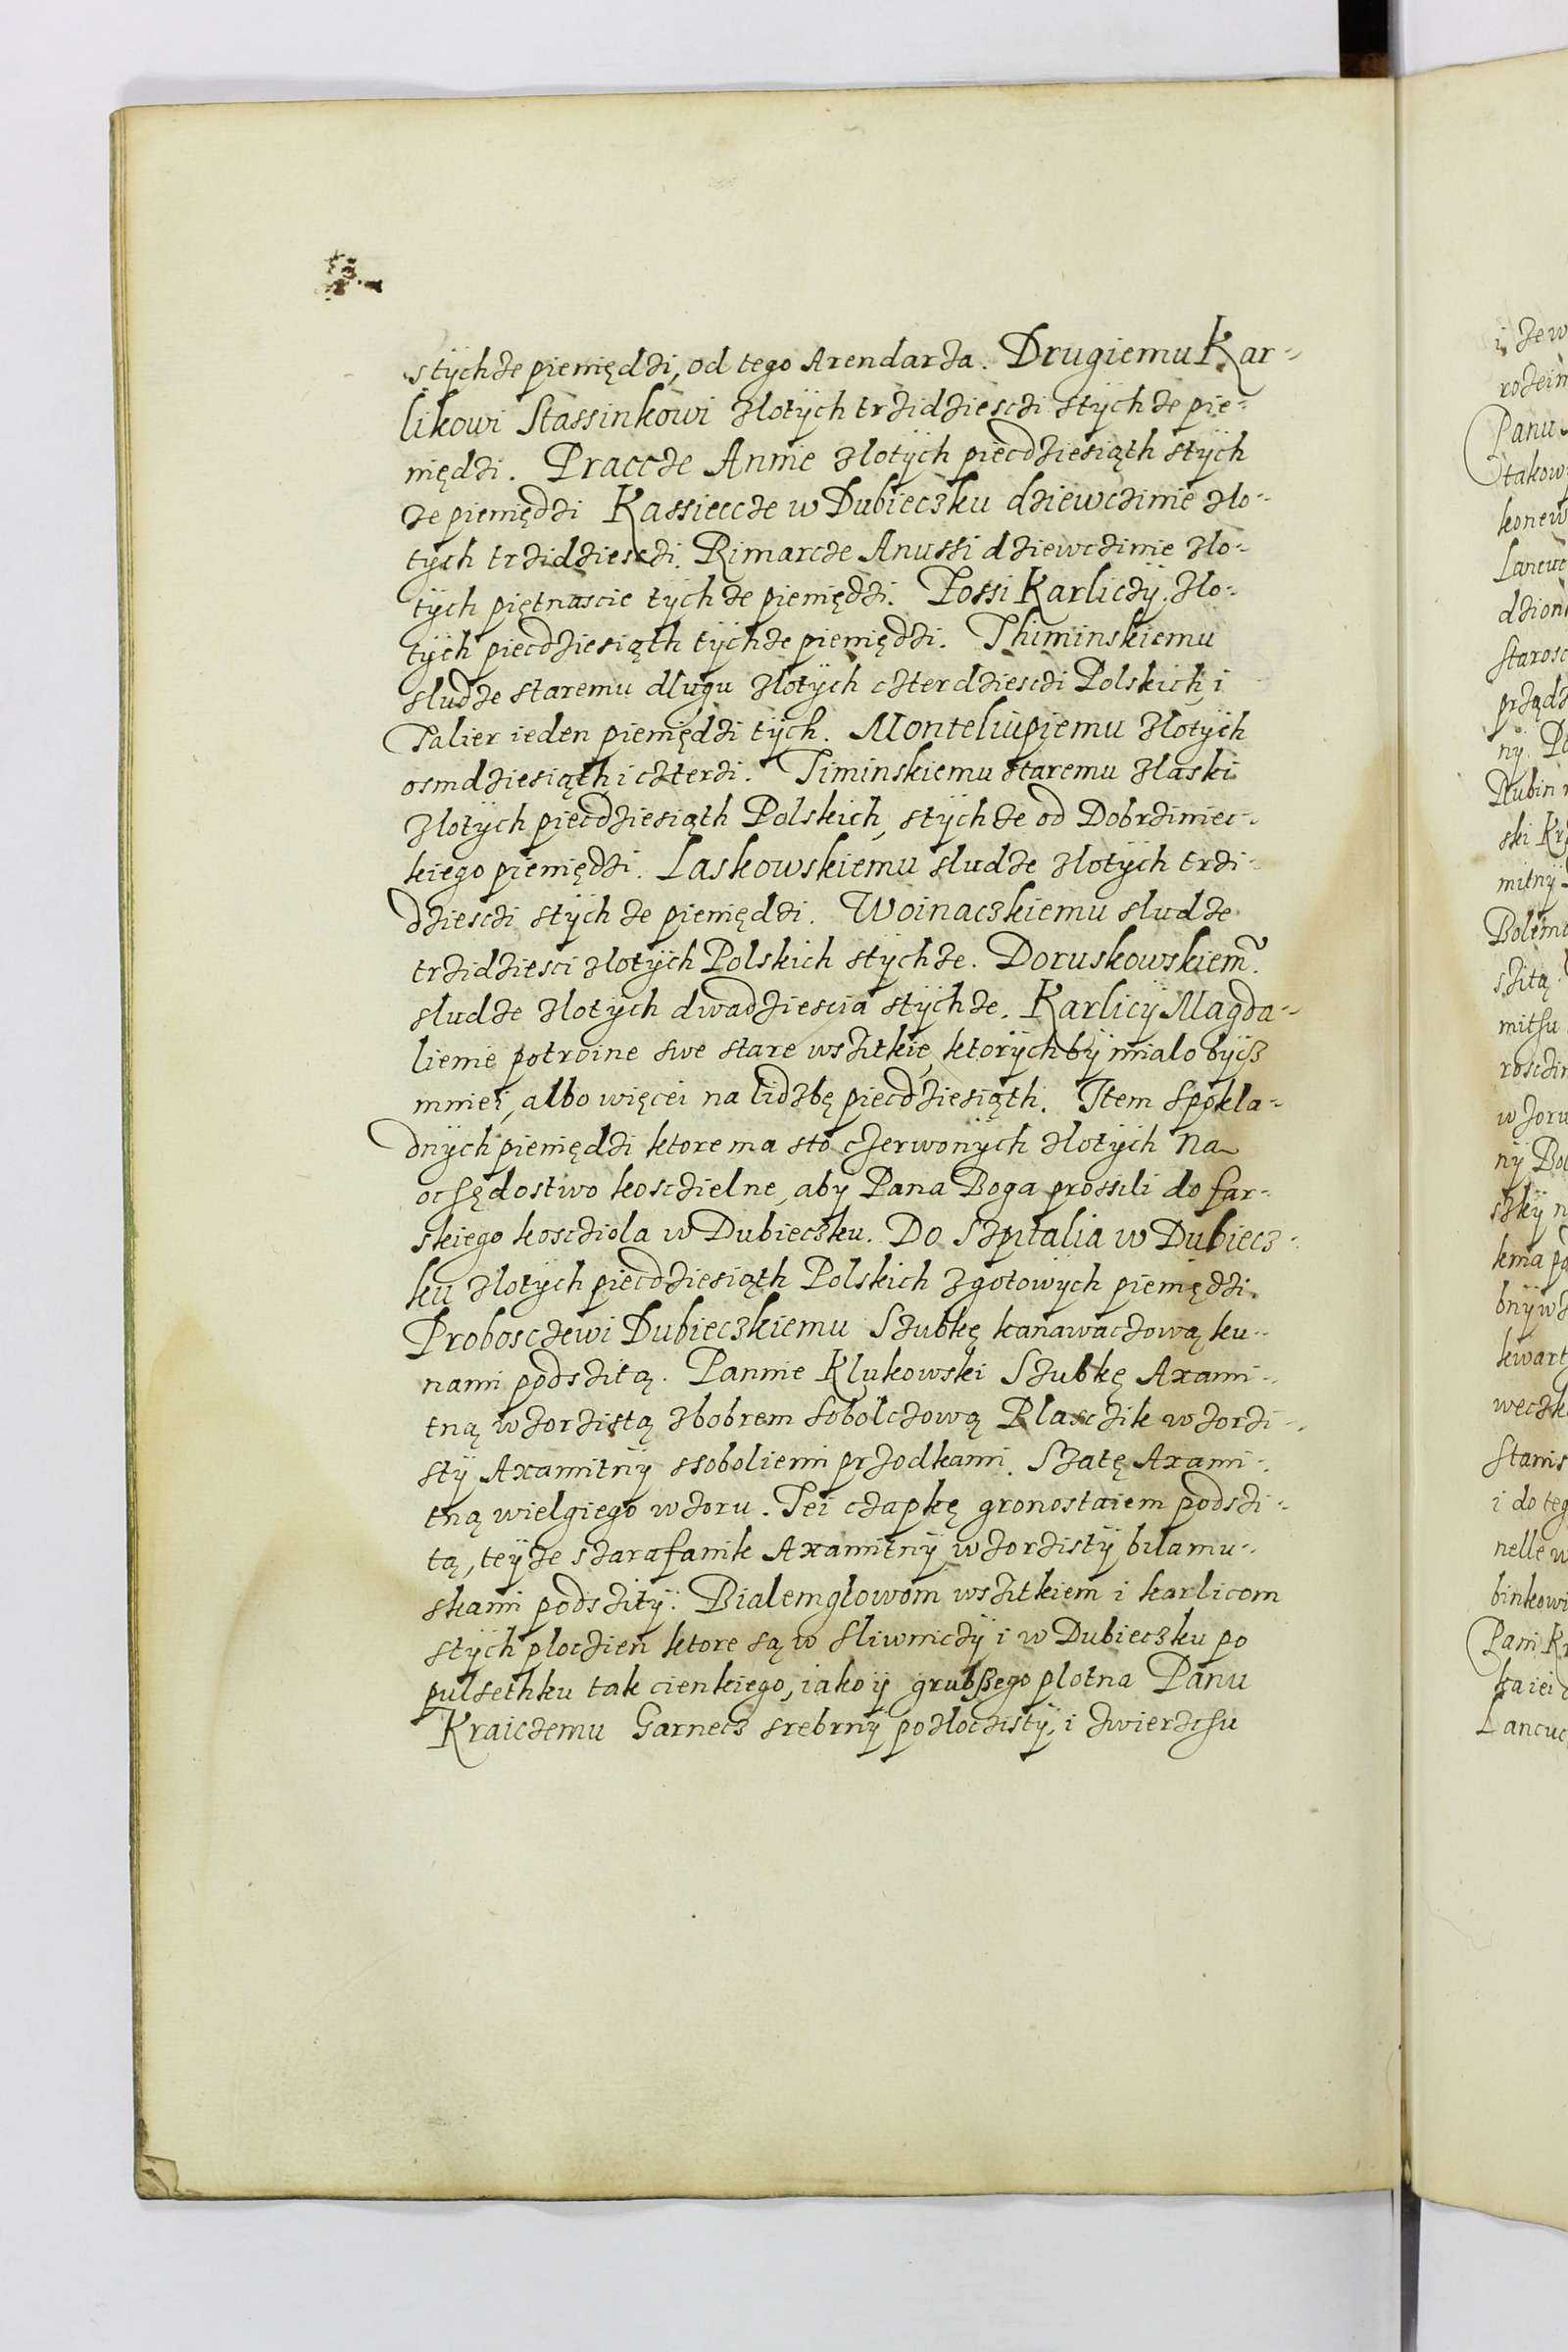 stÿchże pieniędzi, od tego Arendarza. Drugiemu Kar-
likowi Stassinkowi złotÿch trzidziesczi stÿchże pie-
niędzi. Praccze Annie złotÿch piecdziesiąth stÿch
że pieniędzi Kassiecce w Dubieczku dziewczinie zło-
tÿch trzidziesczi. Rimarcze Anussi dziewczinie zło-
tÿch piętnascie tÿchże pieniędzi. Zossi Karliczÿ zło-
tÿch piecdziesiąth tÿchże pieniędzi. Thiminskiemu
słudze staremu długu złotÿch czterdziesczi Polskich i
Talier ieden pieniędzi tÿch. Monteliupiemu złotÿch
osmdziesiąth i czterzi. Timinskiemu staremu złaski
złotÿch piecdziesiąth Polskich, stÿchże od Dobrziniec-
kiego pieniędzi. Laskowskiemu słudze złotÿch trzi-
dziesczi stÿchże pieniędzi. Woinaczkiemu słudze
trzidziesci złotÿch Polskich stÿchże. Doruskowskiem̃.
słudze złotÿch dwadziescia stÿchże. Karlicÿ Magda-
lienie potroine swe stare wszitkie, ktorÿch bÿ miało bÿcz
mniei, albo więcei na lidzbę piecdziesiąth. Item spokła-
dnÿch pieniędzi ktore ma sto czerwonÿch złotÿch na
ochędostwo kosczielne, aby Pana Boga prossili do far-
skiego kosczioła w Dubieczku. Do Szpitalia w Dubiecz-
ku złotÿch piecdziesiąth Polskich zgotowÿch pieniędzi.
Probosczewi Dubieczkiemu Szubkę kanawaczową ku-
nami podszitą. Pannie Klukowski Szubkę Axami-
tną wzorzistą zbobrem sobolczową Plasczik wzorzi-
stÿ Axamitnÿ ssoboliemi przodkami. Szatę Axami-
tną wielgiego wzoru. Tei czapkę gronostaiem podszi-
tą, teÿże szarafanik Axamitnÿ wzorzistÿ biłamu-
skami podszitÿ. Białemgłowom wszitkiem i karlicom
stÿch płoczien ktore są w sliwniczÿ i w Dubieczku po
pulsethku tak cienkiego, iako ÿ grubßego płotna Panu
Kraiczemu Garnecz srebrnÿ pozłoczistÿ, i zwierzchu